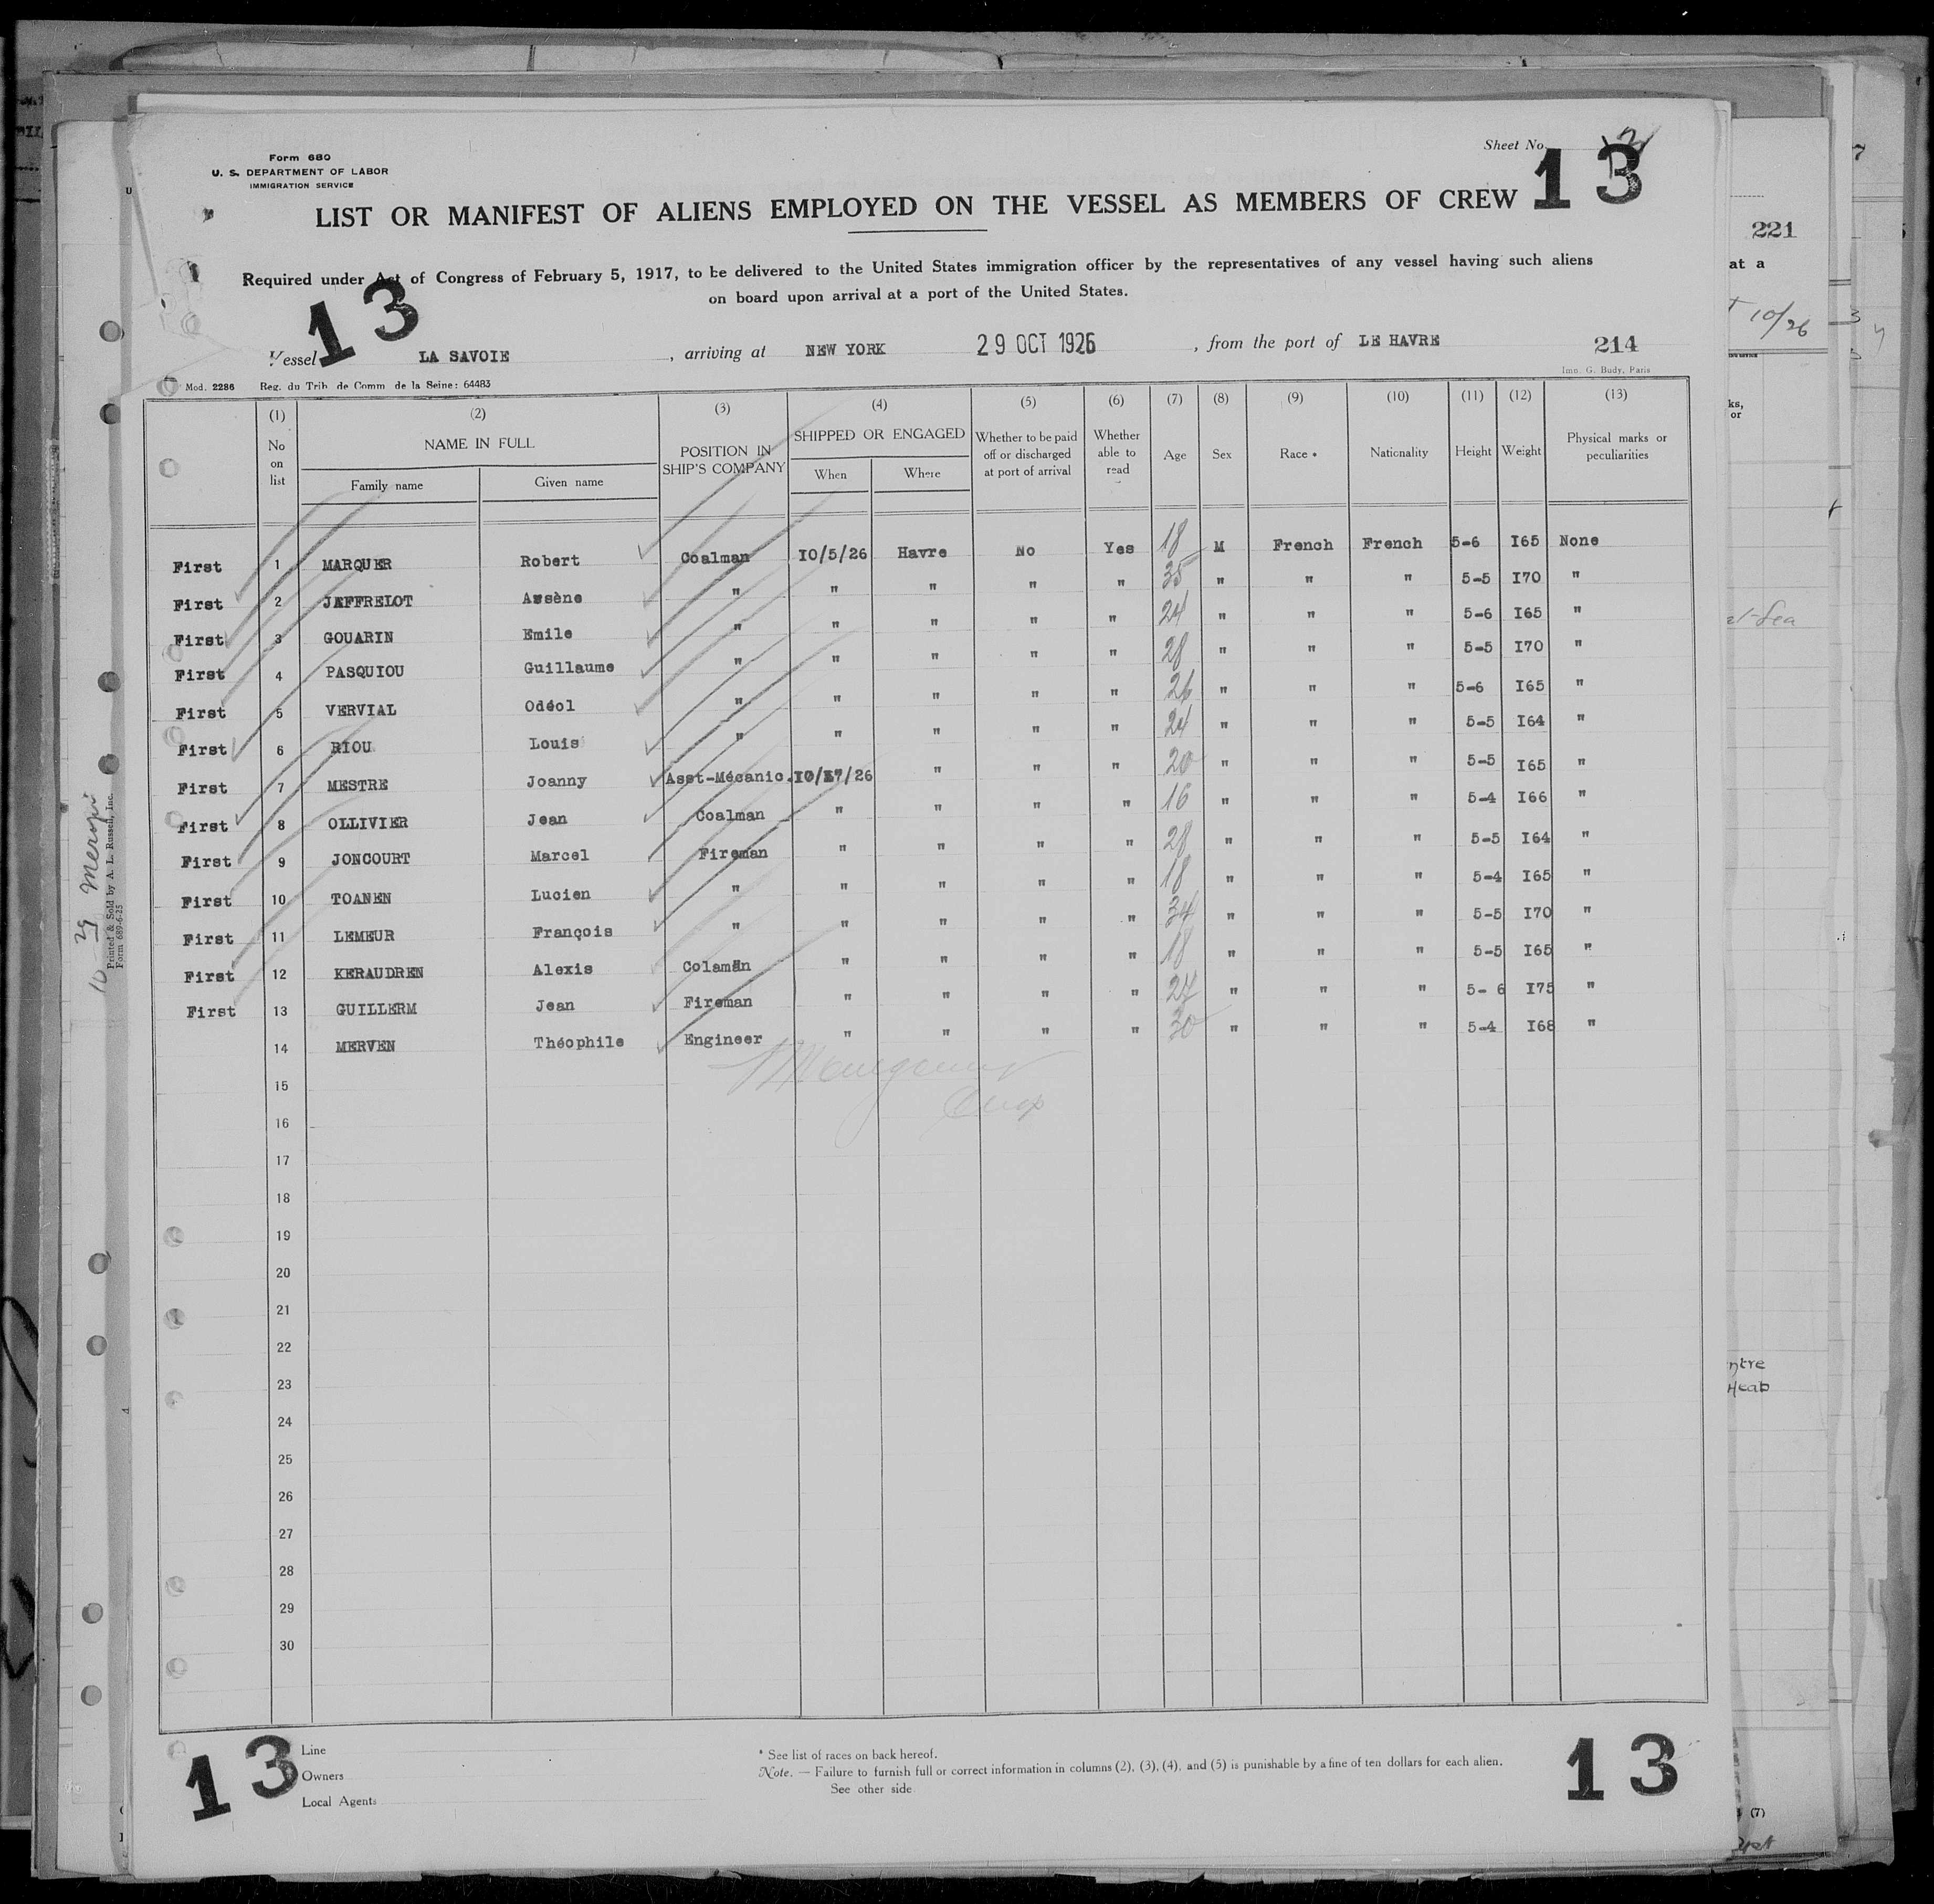 Form 680
U. S. DEPARTMENT OF LABOR
IMMIGRATION SERVICE
Sheet No.
13
LIST OR MANIFEST OF ALIENS EMPLOYED ON THE VESSEL AS MEMBERS OF CREW
Required under Act of Congress of February 5, 1917, to be delivered to the United States immigration officer by the representatives of any vessel having such aliens
on board upon arrival at a port of the United States.
13
Vessel LA SAVOIE, arriving at NEW YORK 29 OCT 1926, from the port of LE HAVRE 214
Mod. 2286 Reg. du Trib. de Comm de la Seine: 64483 Imp. G. Budy, Paris
(1) (2) (3) (4) (5) (6) (7) (8) (9) (10) (11) (12) (13)
No on list NAME IN FULL Family name Given name POSITION IN SHIP'S COMPANY SHIPPED OR ENGAGED When Where Whether to be paid off or discharged at port of arrival Whether able to read Age Sex Race * Nationality Height Weight Physical marks or peculiarities
First 1 MARQUER Robert Coalman 10/5/26 Havre No Yes 18 M French French 5-6 I65 None
First 2 JEFFRELOT Arsène " " " " " 35 " " " 5-5 I70 "
First 3 GOUARIN Emile " " " " " 24 " " " 5-6 I65 "
First 4 PASQUIOU Guillaume " " " " " 28 " " " 5-5 I70 "
First 5 VERVIAL Odéol " " " " " 26 " " " 5-6 I65 "
First 6 RIOU Louis " " " " " 24 " " " 5-5 I64 "
First 7 MESTRE Joanny Asst-Mécanic. 10/17/26 " " " 20 " " " 5-5 I65 "
First 8 OLLIVIER Jean Coalman " " " " 16 " " " 5-4 I66 "
First 9 JONCOURT Marcel Fireman " " " " 28 " " " 5-5 I64 "
First 10 TOANEN Lucien " " " " " 18 " " " 5-4 I65 "
First 11 LEMEUR François " " " " " 34 " " " 5-5 I70 "
First 12 KERAUDREN Alexis Colaman " " " " 18 " " " 5-5 I65 "
First 13 GUILLERM Jean Fireman " " " " 24 " " " 5-6 I75 "
14 MERVEN Théophile Engineer " " " " 30 " " " 5-4 I68 "
15
16
17
18
19
20
21
22
23
24
25
26
27
28
29
30
13
Line
Owners
Local Agents
* See list of races on back hereof.
Note. — Failure to furnish full or correct information in columns (2), (3), (4), and (5) is punishable by a fine of ten dollars for each alien.
See other side
13
Printed & Sold by A. L. Russell, Inc.
Form 689-6-25
221
at a
10/26
ks,
or
ntre
(7)